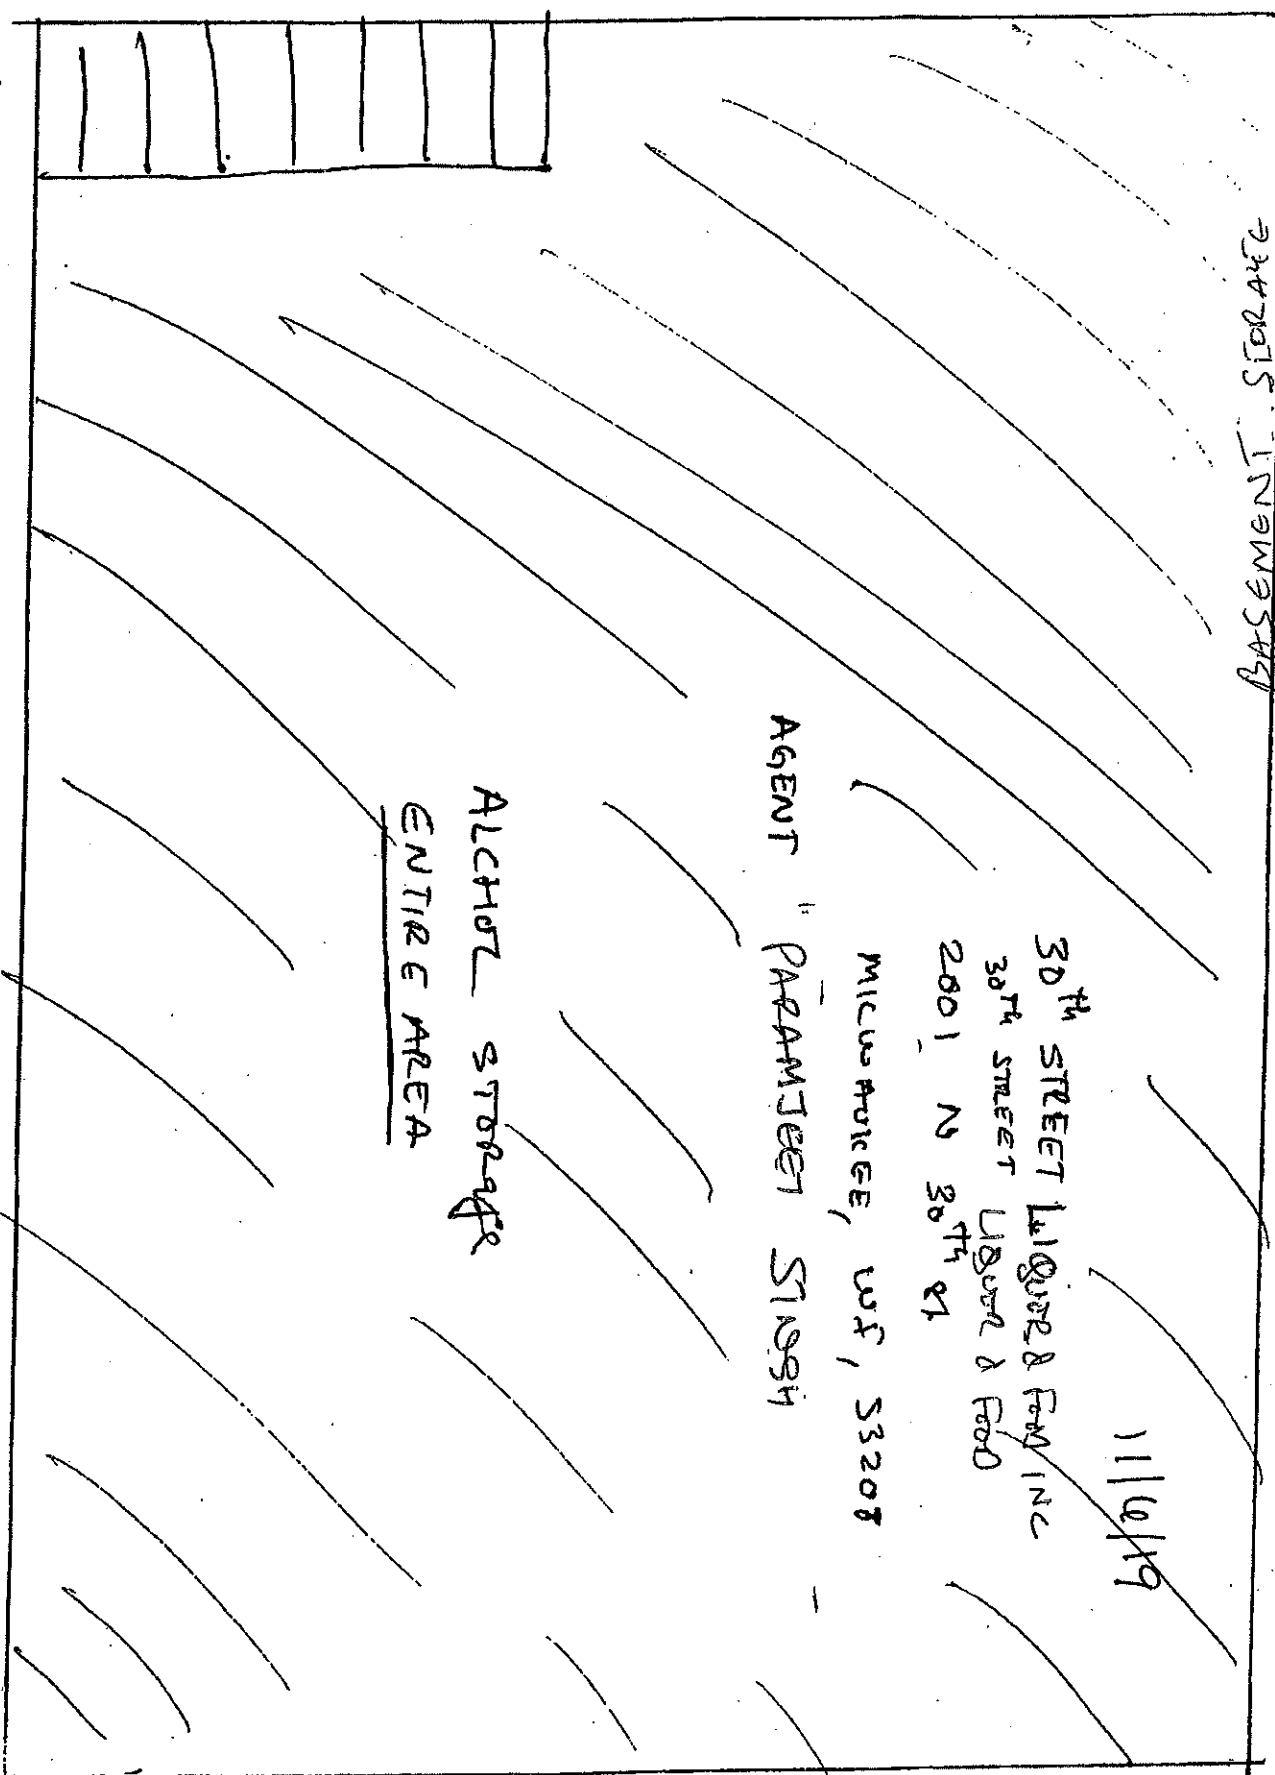 BASEMENT. STORAGE
11/6/19
30Th STREET LIQUOR & FOOD INC
30Th STREET LIQUOR & FOOD
2001 N 30Th ST
MILWAUKEE, WI, 53208
AGENT : PARAMJEET SINGH
ALCHOL STORAGE
ENTIRE AREA